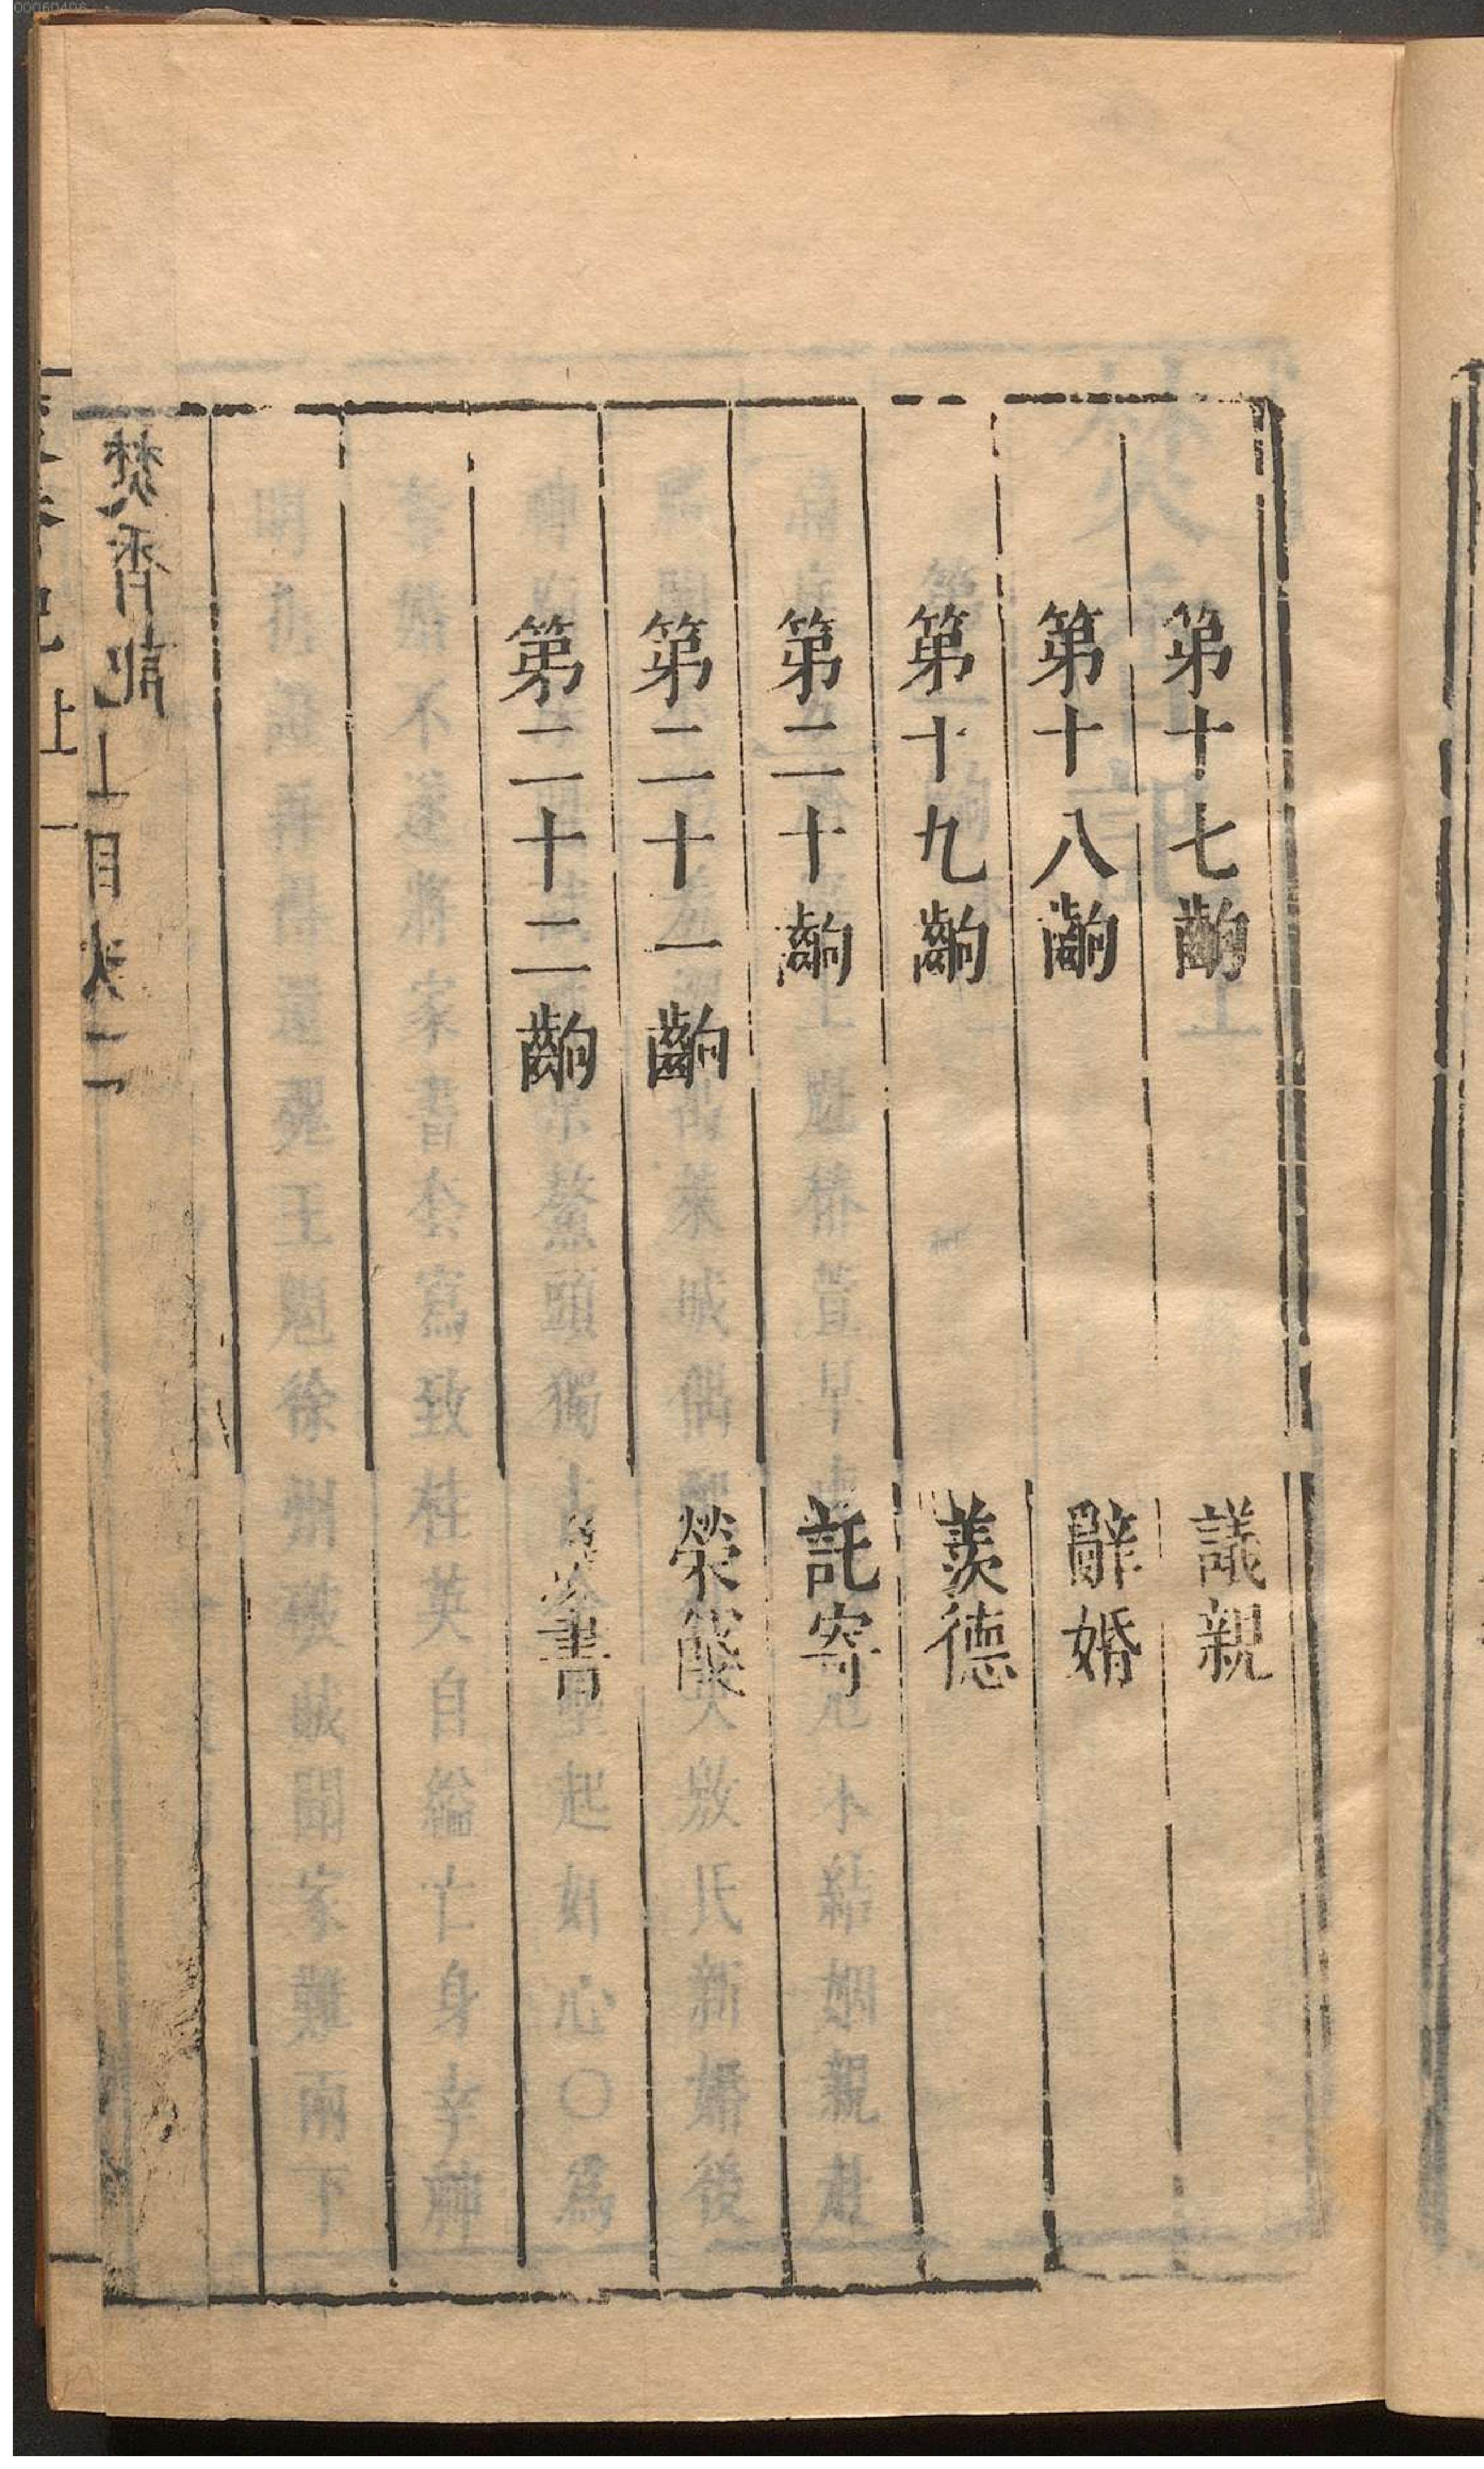 第十七齣 議親
第十八齣 辭婚
第十九齣 羨德
第二十齣 託寄
第二十一齣 榮餞
第二十二齣 書
焚香記上目 二
上 一
00060406